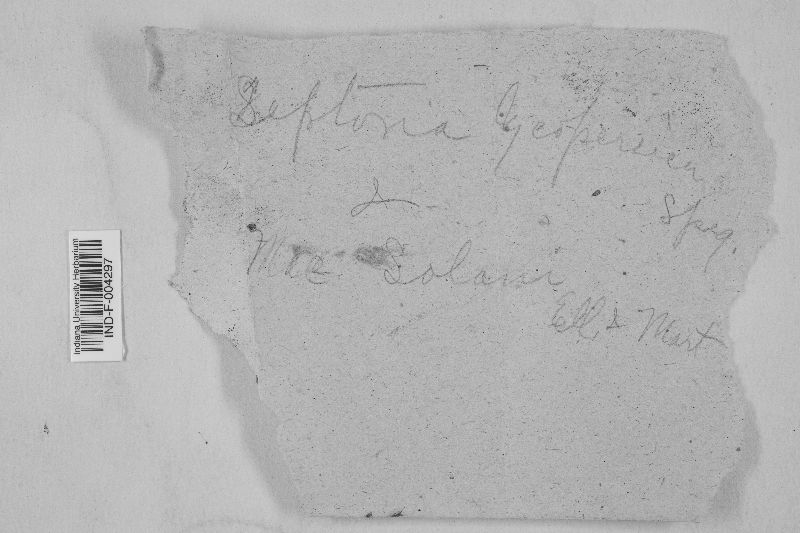 Septoria Lycopersici
Speg.
&
Mac Solani
Ell. & Mart
Indiana University Herbarium
IND-F-004297